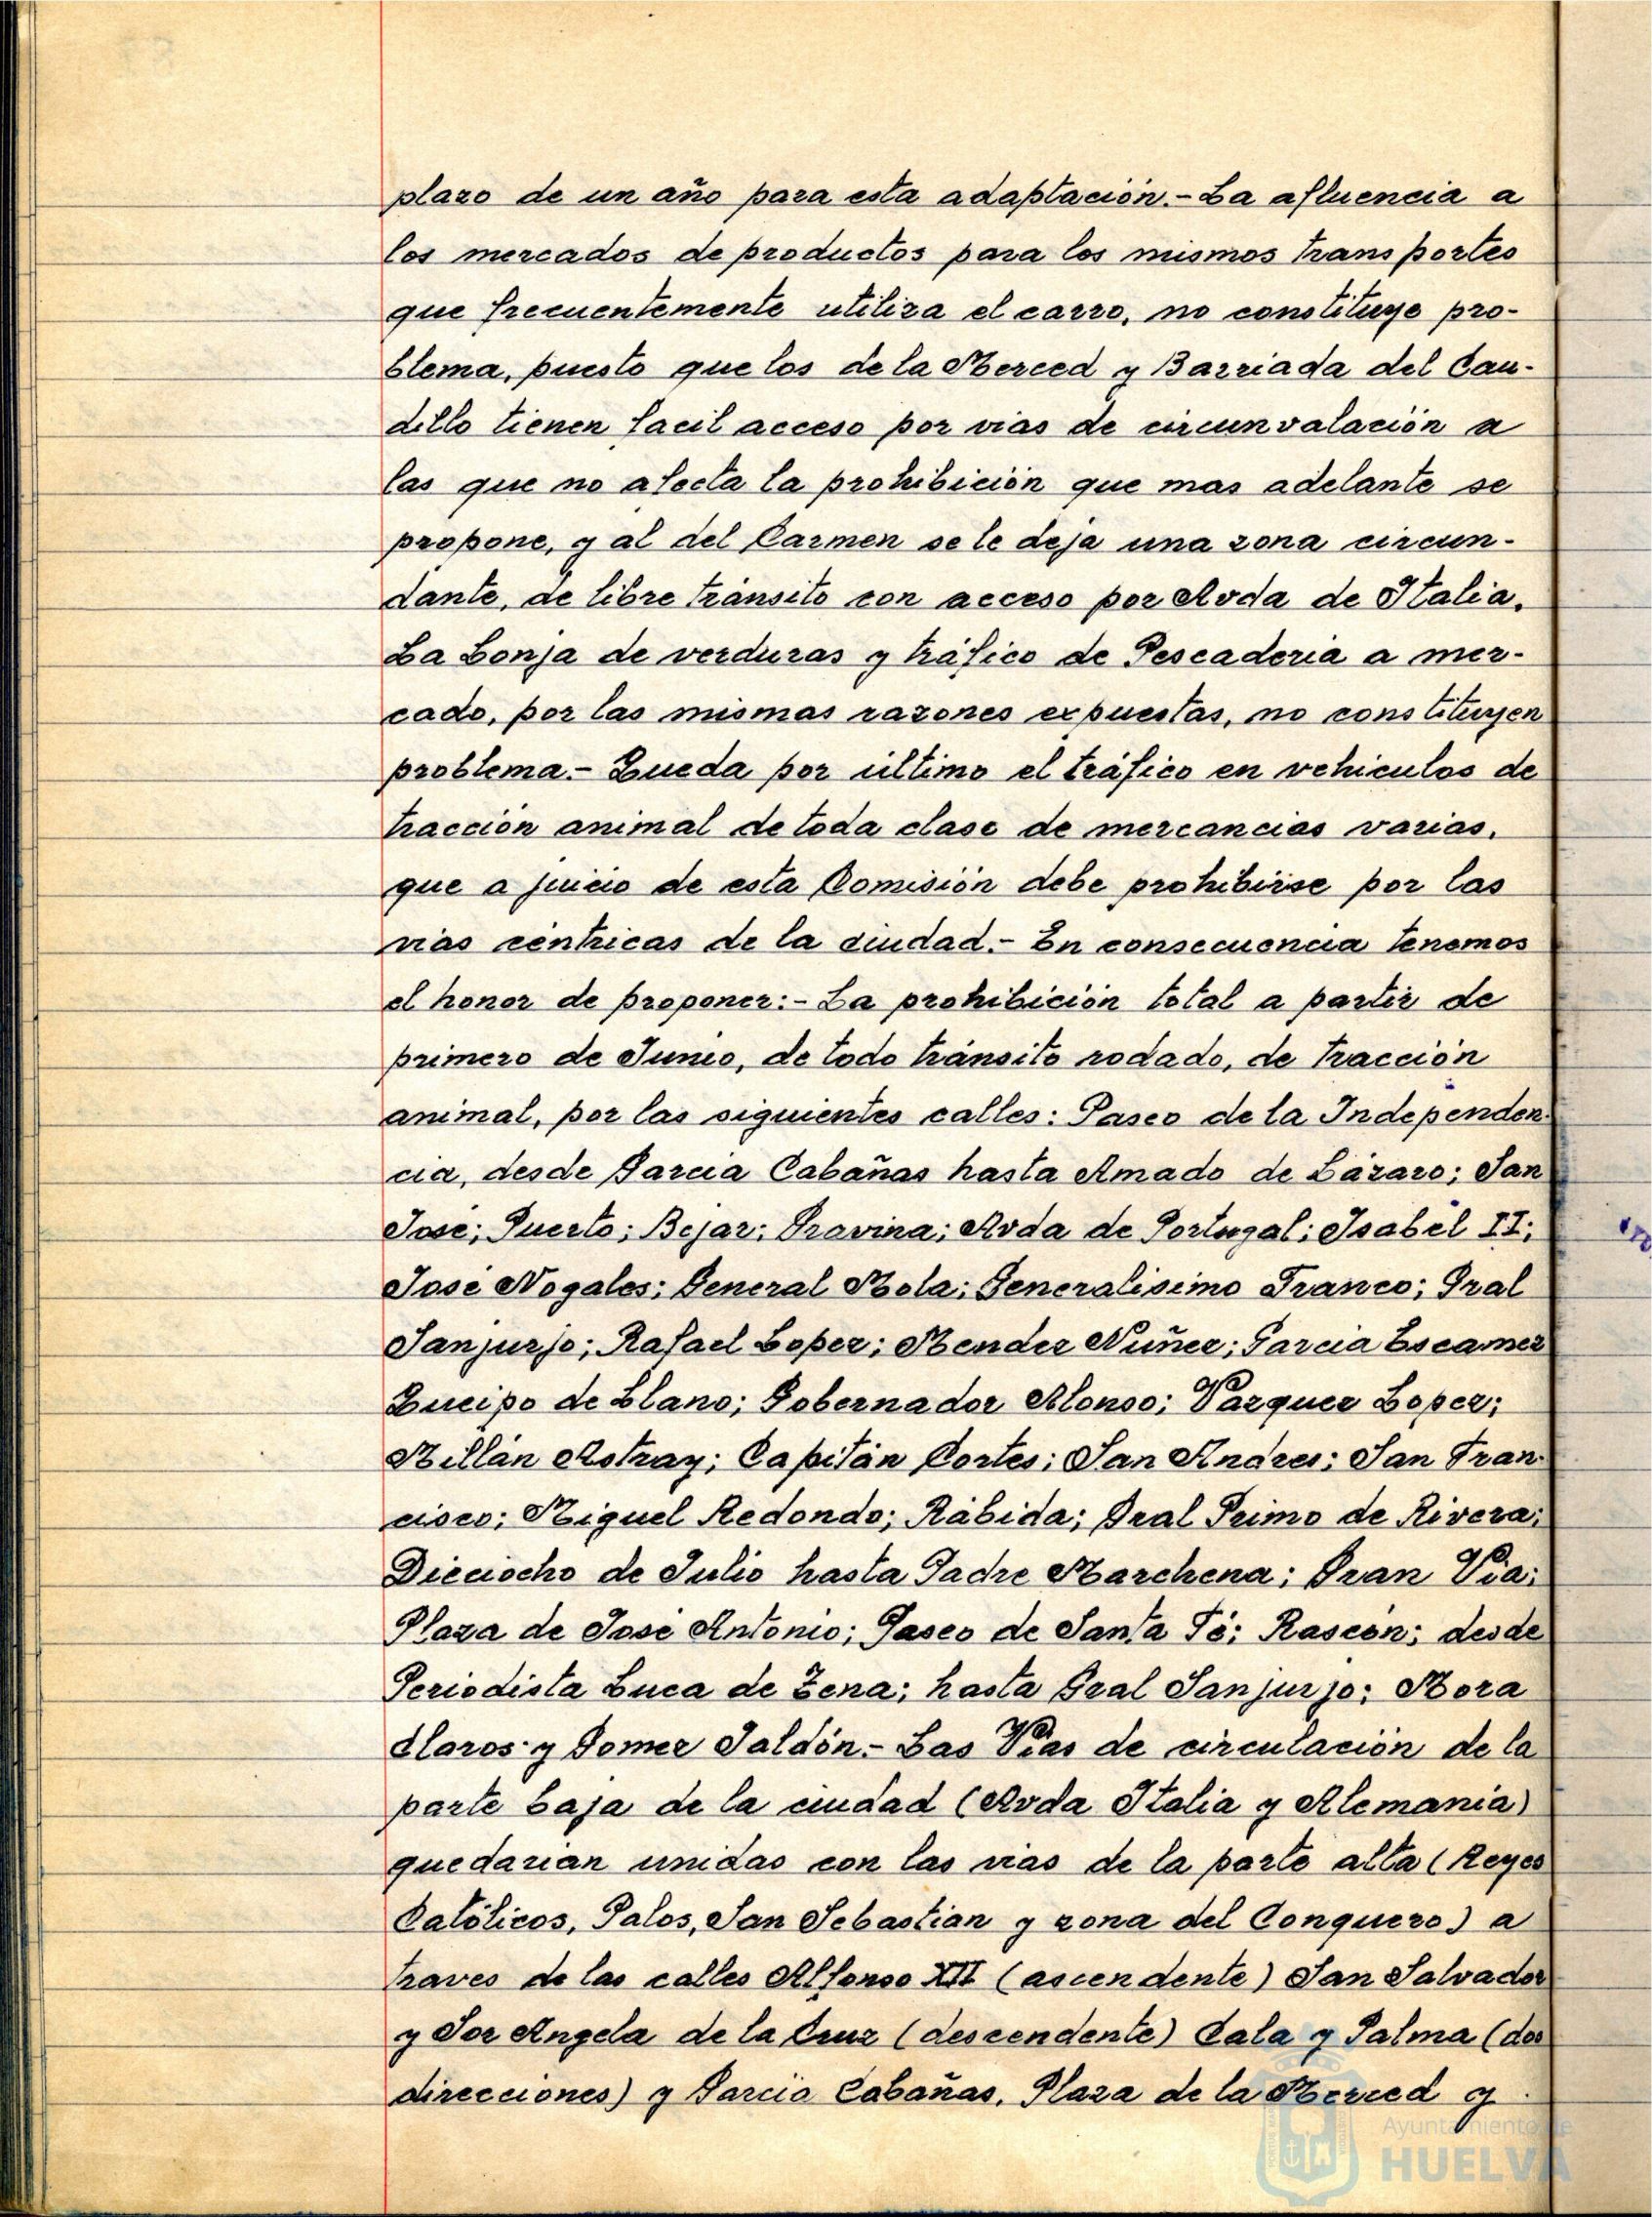 plazo de un año para esta adaptación.- La afluencia a
los mercados de productos para los mismos transportes
que frecuentemente utiliza el carro, no constituye pro-
blema, puesto que los de la Merced y Barriada del Cau-
dillo tienen facil acceso por vias de circunvalación a
las que no afecta la prohibición que mas adelante se
propone, y al del Carmen se le deja una zona circun-
dante, de libre tránsito con acceso por Avda de Italia.
La Lonja de verduras y tráfico de Pescaderia a mer-
cado, por las mismas razones expuestas, no constituyen
problema.- Queda por último el tráfico en vehiculos de
tracción animal de toda clase de mercancias varias,
que a juicio de esta Comisión debe prohibirse por las
vias céntricas de la ciudad.- En consecuencia tenemos
el honor de proponer:- La prohibición total a partir de
primero de Junio, de todo tránsito rodado, de tracción
animal, por las siguientes calles: Paseo de la Independen-
cia, desde Garcia Cabañas hasta Amado de Lázaro; San
José; Puerto; Bejar; Gravina; Avda de Portugal; Isabel II;
José Nogales; General Mola; Generalisimo Franco; Gral
Sanjurjo; Rafael Lopez; Mendez Nuñez; Garcia Escamez
Queipo de Llano; Gobernador Alonso; Vazquez Lopez;
Millán Astray; Capitán Cortes; San Andres; San Fran-
cisco; Miguel Redondo; Rábida; Gral Primo de Rivera;
Dieciocho de Julio hasta Padre Marchena; Gran Via;
Plaza de José Antonio; Paseo de Santa Fé; Rascón; desde
Periodista Luca de Tena; hasta Gral Sanjurjo; Mora
Claros y Gomez Jaldón.- Las Vias de circulación de la
parte baja de la ciudad (Avda Italia y Alemania)
quedarian unidas con las vias de la parte alta (Reyes
Católicos, Palos, San Sebastian y zona del Conquero) a
traves de las calles Alfonso XII (ascendente) San Salvador
y Sor Angela de la Cruz (descendente) Cala y Palma (dos
direcciones) y Garcia Cabañas, Plaza de la Merced y
Ayuntamiento de
HUELVA